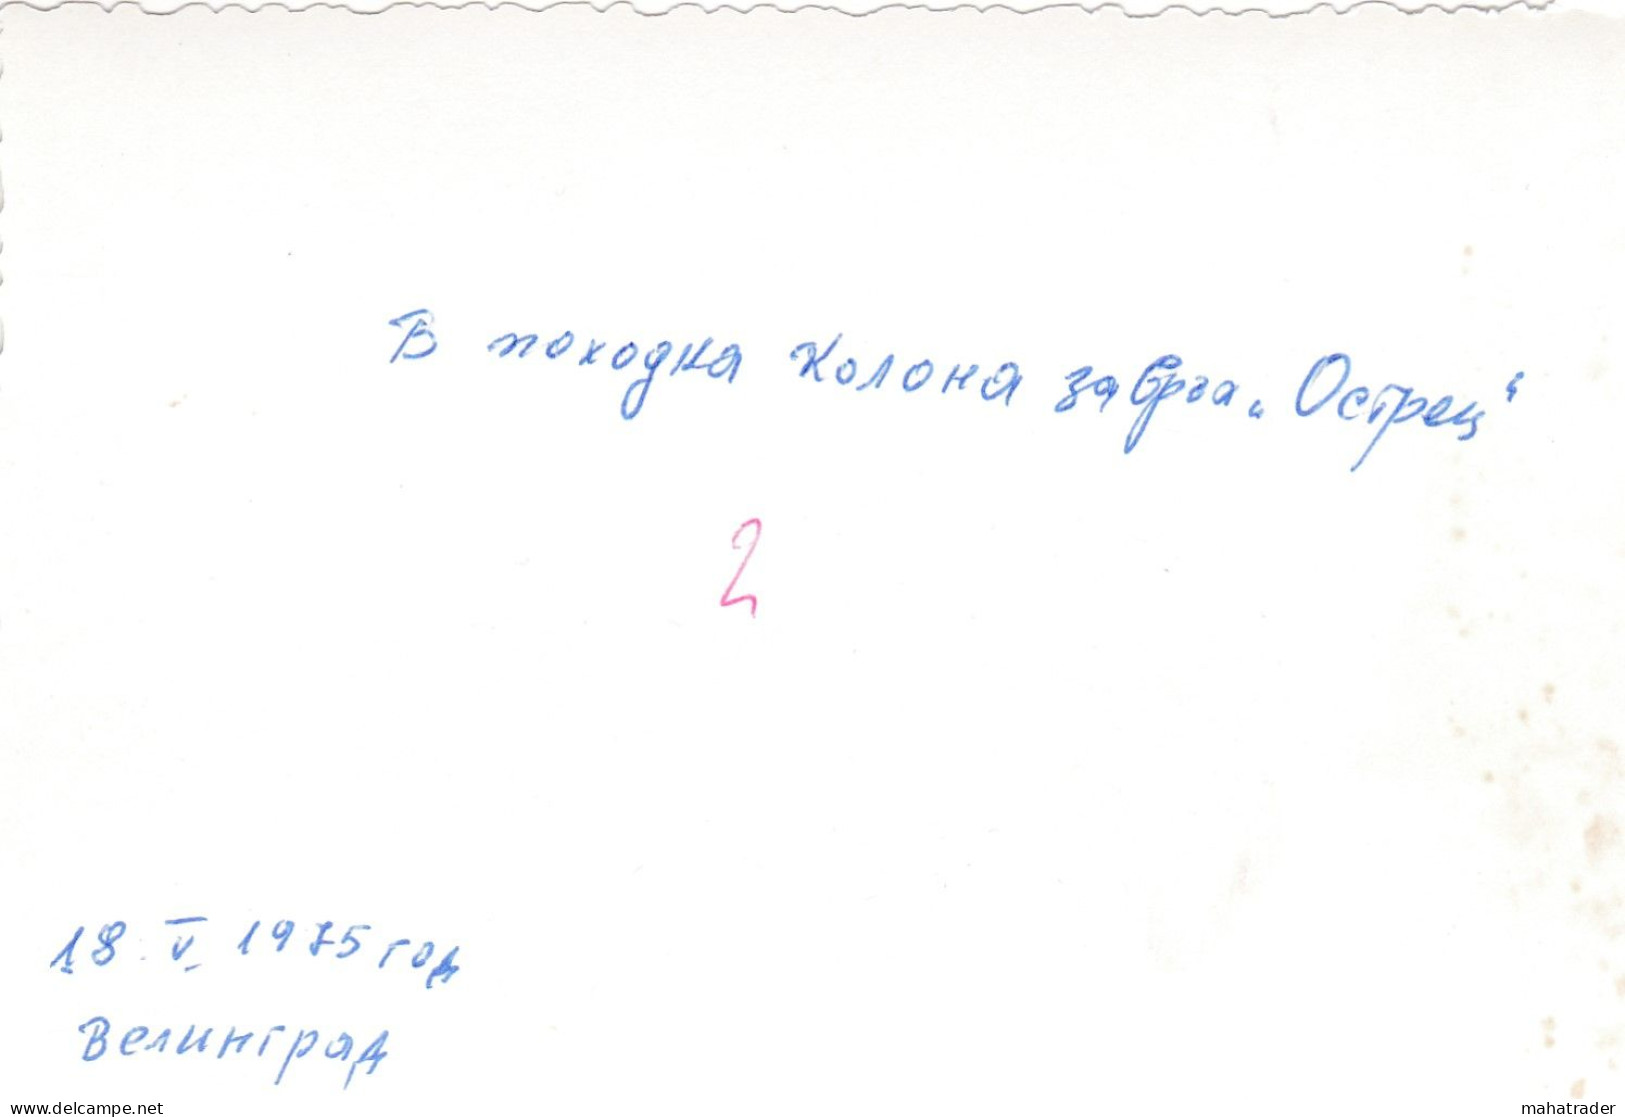 В походна колона за връа „Острец“
2
18. V. 1975 год
Велинград
www.delcampe.net
mahatrader